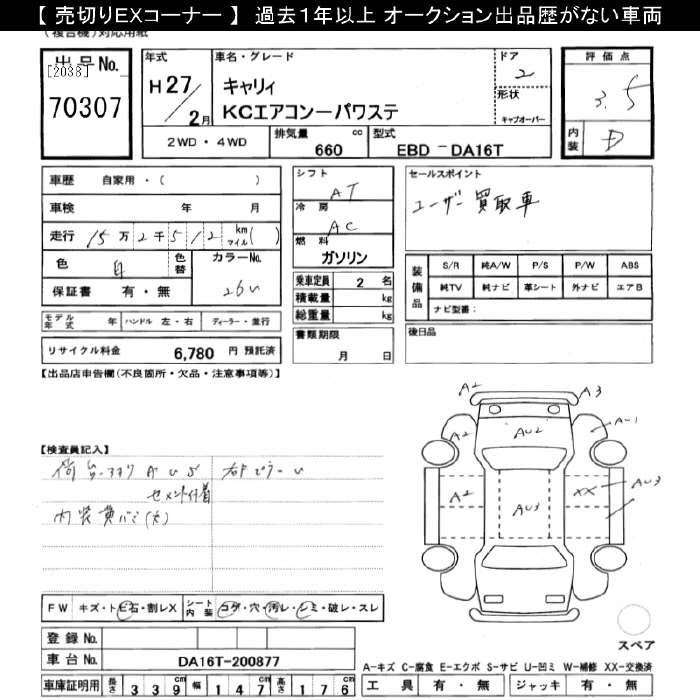 【 売切りEXコーナー 】 過去1年以上 オークション出品歴がない車両
(複合機)対応用紙
出品No.
[2038]
70307
年式
H27/2月
車名・グレード
キャリィ
KCエアコンーパワステ
ドア
2
形状
キャブオーバー
評価点
3.5
内装
D
2WD・4WD
排気量
660 cc
型式
EBD-DA16T
車歴 自家用・( )
車検 年 月
走行 15万2千512 km マイル( )
色 白 色替 カラーNo. 26U
保証書 有・無
モデル年式 年 ハンドル 左・右 ディーラー・並行
リサイクル料金 6,780 円 預託済
シフト
AT
冷房
AC
燃料
ガソリン
乗車定員 2 名
積載量 kg
総重量 kg
書類期限
月 日
セールスポイント
ユーザー買取車
装備品
S/R 純A/W P/S P/W ABS
純TV 純ナビ 革シート 外ナビ エアB
ナビ型番:
後日品
【出品店申告欄(不良箇所・欠品・注意事項等)】
【検査員記入】
セメント付着
内装
A2
A3
A2
AU2
AU1
A2
AU3
XX
AU3
FW キズ・トビ石・割レX シート内装 コゲ・穴・汚レ・シミ・破レ・スレ
登録No.
車台No. DA16T-200877
車庫証明用 長さ 339 幅 147 高さ 176
スペア
A-キズ C-腐食 E-エクボ S-サビ U-凹ミ W-補修 XX-交換済
工具 有・無 ジャッキ 有・無